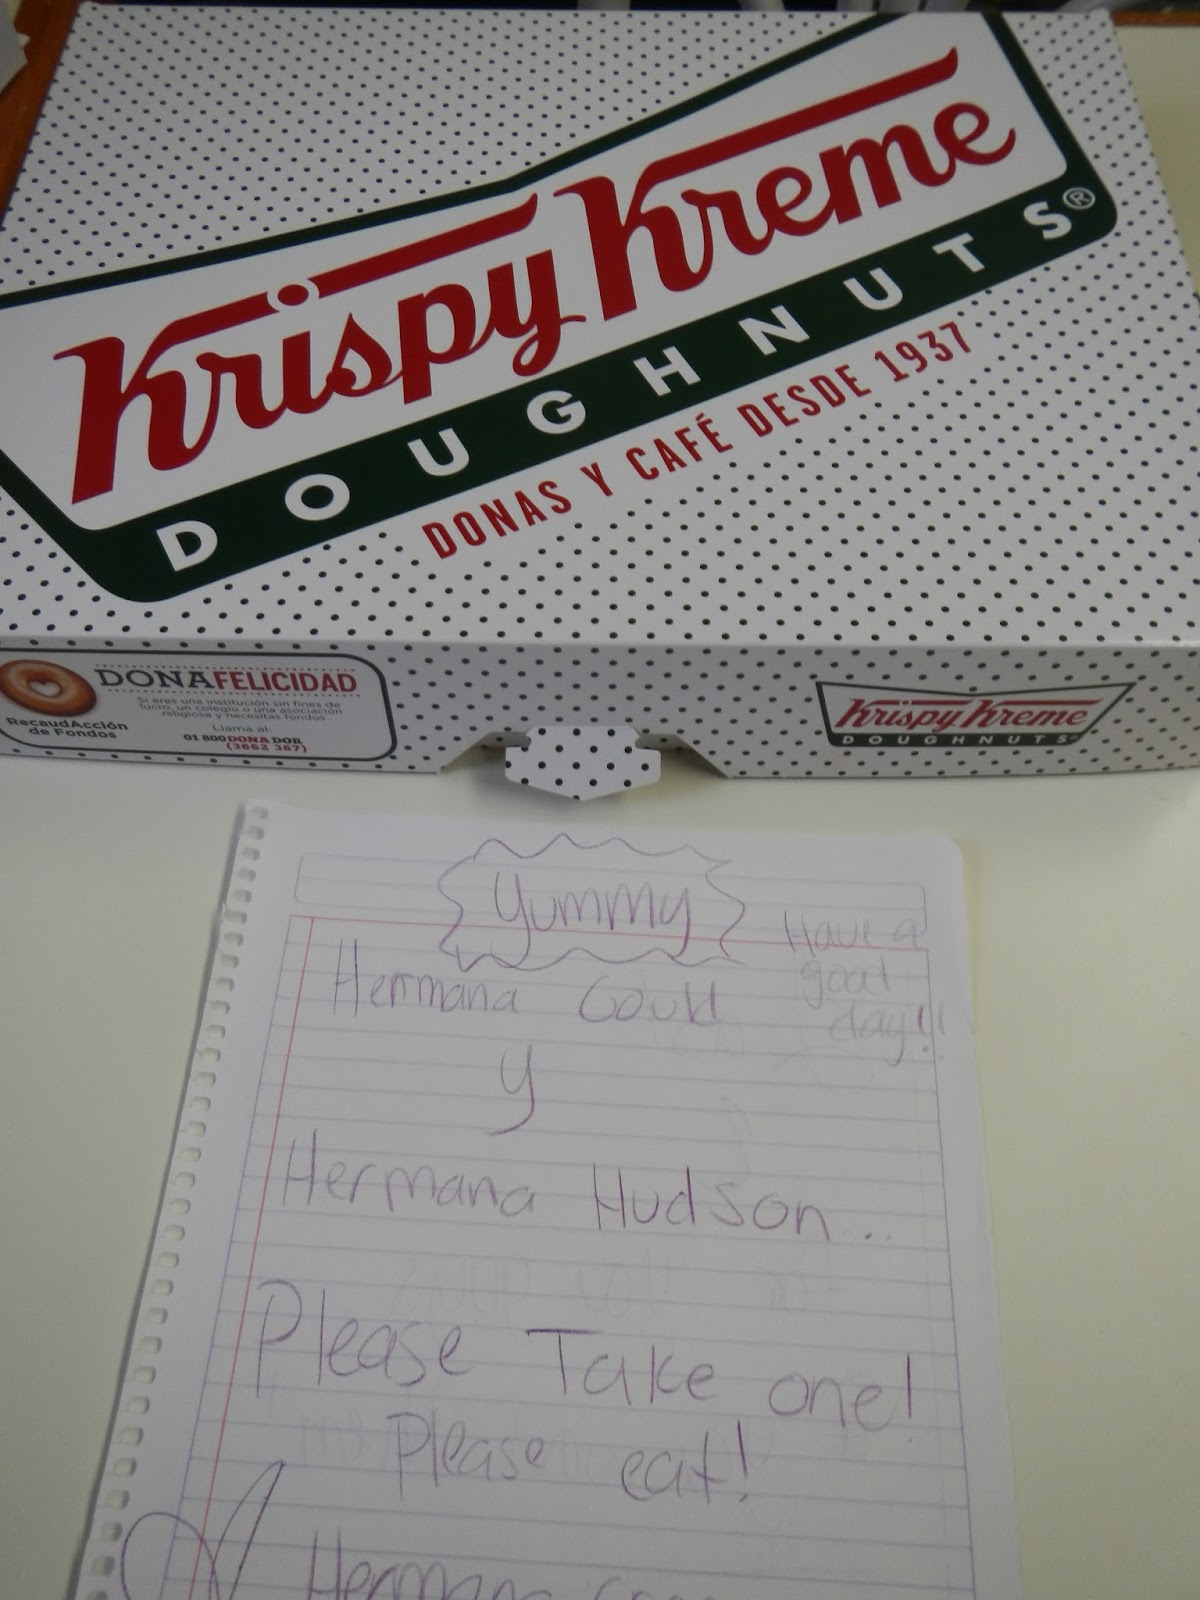 Krispy Kreme
DOUGHNUTS®
DONAS Y CAFÉ DESDE 1937
DONAFELICIDAD
Si eres una institución sin fines de
lucro, un colegio o una asociación
religiosa y necesitas fondos
Llama al:
01 800DONA DOR
(3662 367)
RecaudAcción
de Fondos
Krispy Kreme
DOUGHNUTS
Yummy
Have a
good
day!!
Hermana Gould
y
Hermana Hudson...
Please Take one!
Please eat!
Hermana